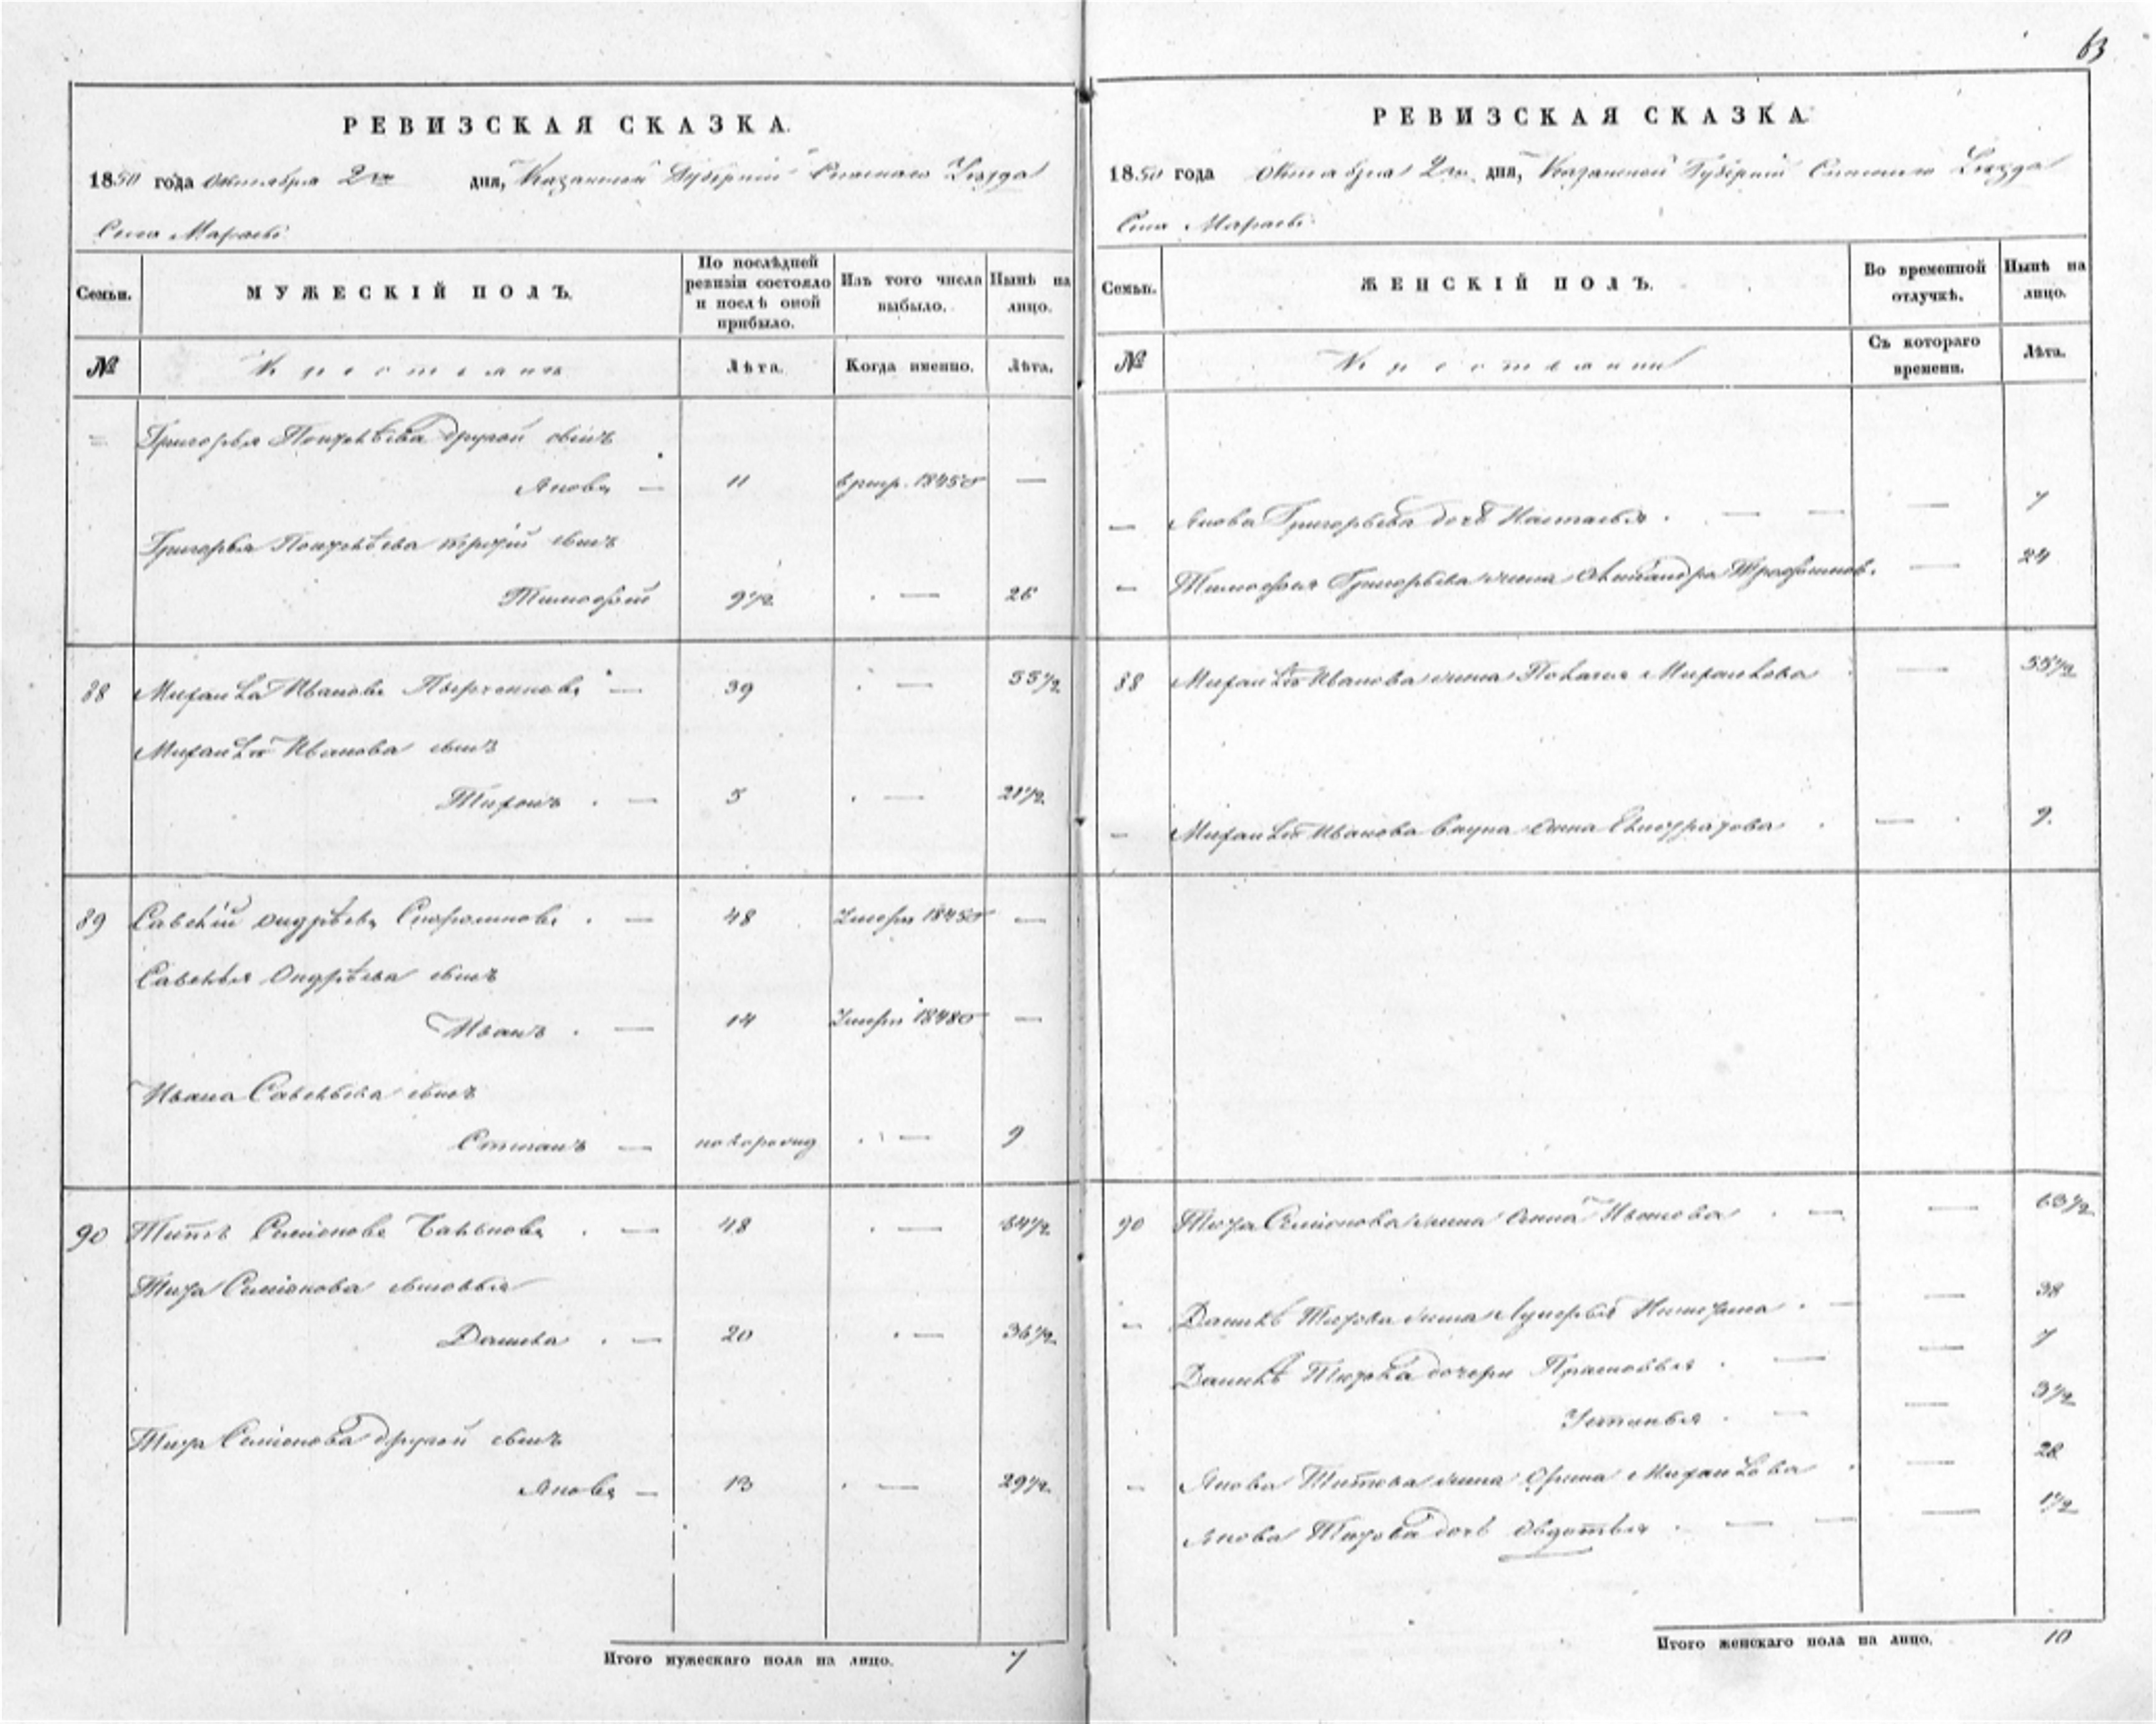 63
РЕВИЗСКАЯ СКАЗКА.
1850 года Октября 2го дня, Казанской Губернии Спаского Уезда
Села Мараси
Семьи. МУЖЕСКІЙ ПОЛЪ. По послѣдней ревизіи состояло и послѣ оной прибыло. Изъ того числа выбыло. Нынѣ на лицо.
№ Крестьянъ Лѣта. Когда именно. Лѣта.
Григорья другой сынъ
Яковъ — 11 1845го —
Григорья третій сынъ
Тимофей 9 1/2 — 26
88 Михаила Ивановъ — 39 — 55 1/2
Михайла Иванова сынъ
Тихонъ — 5 — 21 1/2
89 Савелій Андрѣевъ — 48 Умеръ 1845го —
Савелья Андрѣева сынъ
Иванъ — 14 Умеръ 1848го —
Ивана Савельева сынъ
Степанъ — — 9
90 Титъ Семіоновъ — 48 — 64 1/2
Тита Семіонова сыновья
Данила — 20 — 36 1/2
Тита Семіонова другой сынъ
Яковъ — 13 — 29 1/2
Итого мужескаго пола на лицо. 7
РЕВИЗСКАЯ СКАЗКА.
1850 года Октября 2го дня, Казанской Губерніи Спаского Уезда
Села Мараси
Семьи. ЖЕНСКІЙ ПОЛЪ. Во временной отлучкѣ. Нынѣ на лицо.
№ Крестьянки Съ котораго времени. Лѣта.
— Якова Григорьева дочь Настасья — — — 7
— Тимофея Григорьева жена — 24
88 Михайла Иванова жена Михайлова — 55 1/2
— Михайла Иванова внука Анна — 9
90 Тита Семіонова жена Анна Иванова — — 63 1/2
— Данилы Титова жена Лукерья Никитина — — 38
Данилы Титова дочери Прасковья — — 7
Устинья — — 3 1/2
— Якова Титова жена Орина Михайлова — 28
Якова Титова дочь Авдотья — — — 1 1/2
Итого женскаго пола на лицо. 10